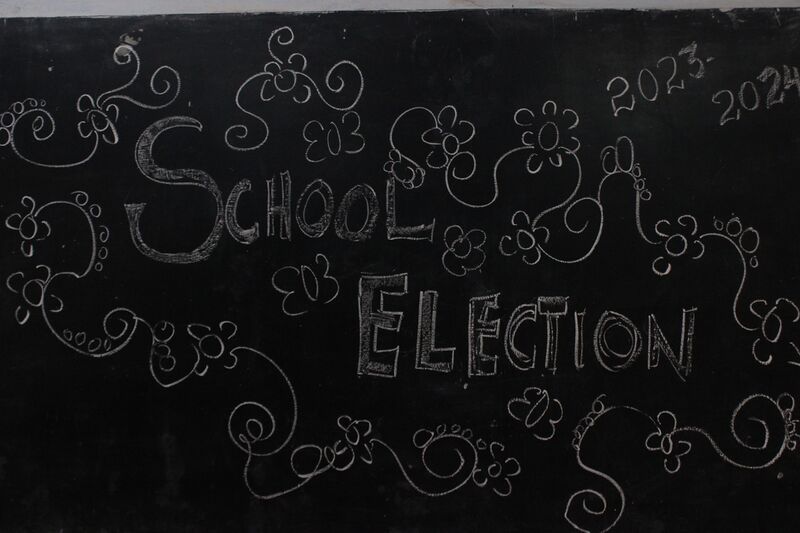 2023-
2024
SCHOOL
ELECTION